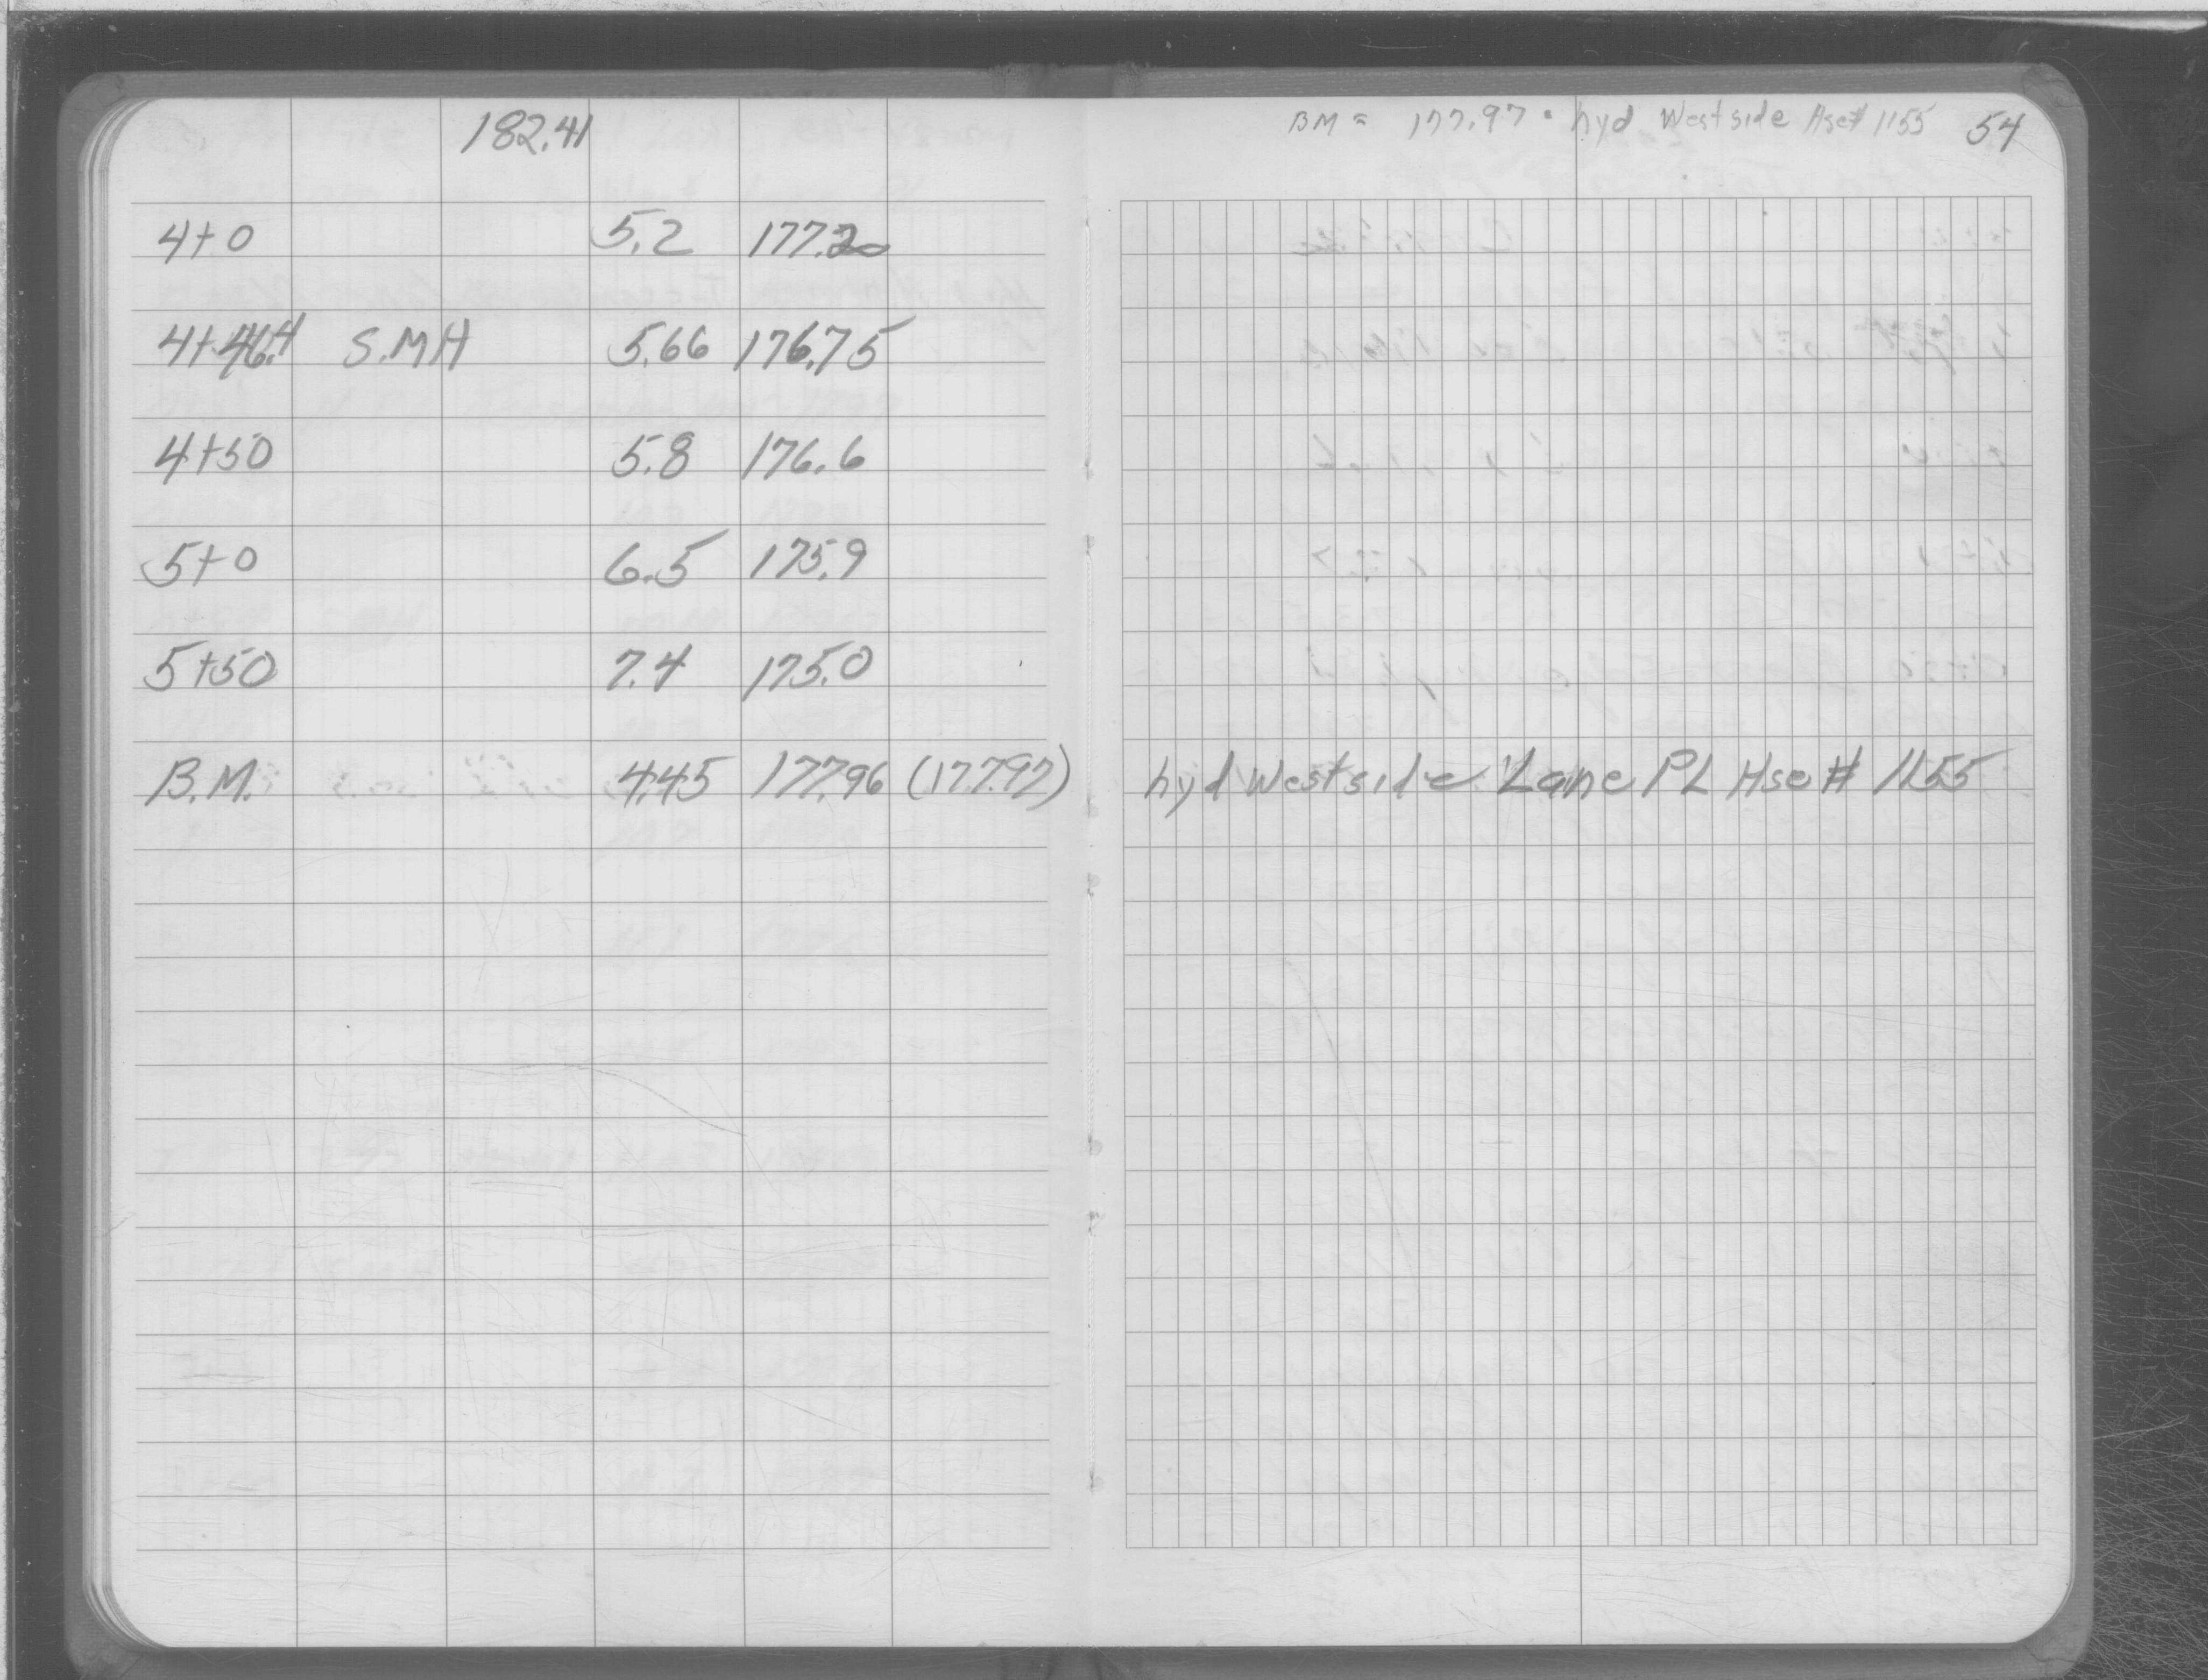 182.41
BM = 177.97 · hyd Westside Hse# 1155 54
4+0 5.2 177.20
4+46.4 S.MH 5.66 176.75
4+50 5.8 176.6
5+0 6.5 175.9
5+50 7.4 175.0
B.M. 4.45 177.96 (177.97) hyd Westside Lane PL Hse# 1155